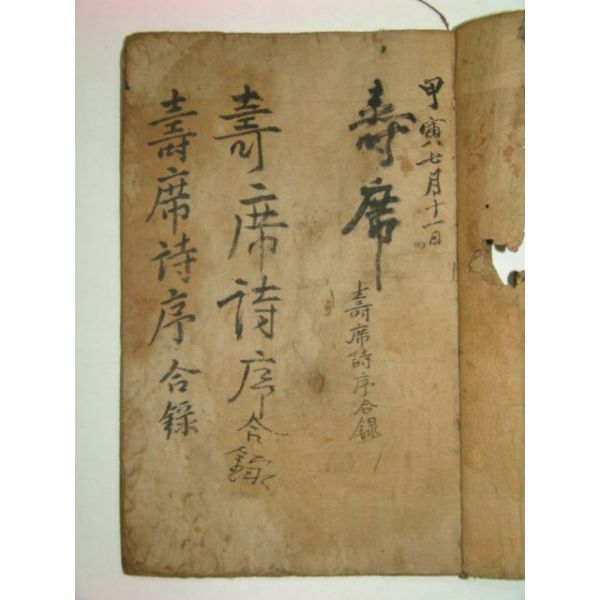 甲寅七月十一日
壽席
壽席詩序合錄
壽席詩序合錄
壽席詩序合錄